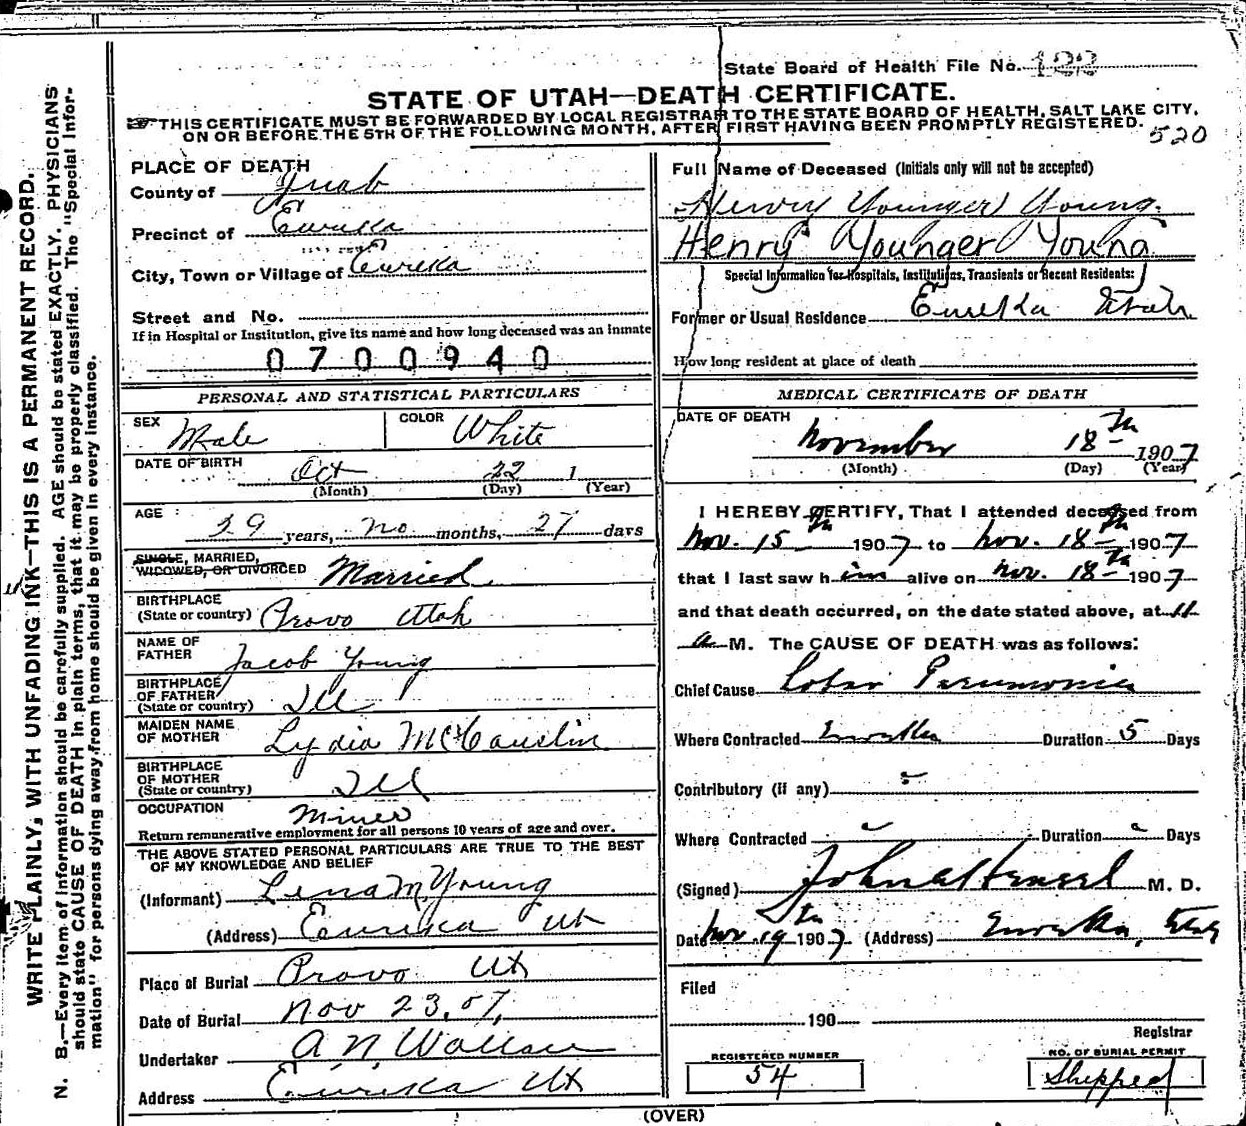 State Board of Health File No. 122
STATE OF UTAH—DEATH CERTIFICATE.
THIS CERTIFICATE MUST BE FORWARDED BY LOCAL REGISTRAR TO THE STATE BOARD OF HEALTH, SALT LAKE CITY,
ON OR BEFORE THE 5TH OF THE FOLLOWING MONTH, AFTER FIRST HAVING BEEN PROMPTLY REGISTERED.
520
WRITE PLAINLY, WITH UNFADING INK—THIS IS A PERMANENT RECORD.
N. B.—Every item of information should be carefully supplied. AGE should be stated EXACTLY. PHYSICIANS
should state CAUSE OF DEATH in plain terms, that it may be properly classified. The "Special Infor-
mation" for persons dying away from home should be given in every instance.
PLACE OF DEATH
County of Juab
Precinct of Eureka
City, Town or Village of Eureka
Street and No.
If in Hospital or Institution, give its name and how long deceased was an inmate
0700940
PERSONAL AND STATISTICAL PARTICULARS
SEX Male COLOR White
DATE OF BIRTH Oct 22 1
(Month) (Day) (Year)
AGE 29 years, no months, 27 days
SINGLE, MARRIED,
WIDOWED, OR DIVORCED Married
BIRTHPLACE
(State or country) Provo Utah
NAME OF
FATHER Jacob Young
BIRTHPLACE
OF FATHER
(State or country) Ill
MAIDEN NAME
OF MOTHER Lydia McCauslin
BIRTHPLACE
OF MOTHER
(State or country) Ill
OCCUPATION Miner
Return remunerative employment for all persons 10 years of age and over.
THE ABOVE STATED PERSONAL PARTICULARS ARE TRUE TO THE BEST
OF MY KNOWLEDGE AND BELIEF
(Informant) Lena M Young
(Address) Eureka Ut
Place of Burial Provo Ut
Date of Burial Nov 23, 07,
Undertaker A N Wallace
Address Eureka Ut
Full Name of Deceased (Initials only will not be accepted)
Henry Younger Young.
Henry Younger Young
Special Information for Hospitals, Institutions, Transients or Recent Residents:
Former or Usual Residence Eureka Utah.
How long resident at place of death
MEDICAL CERTIFICATE OF DEATH
DATE OF DEATH
November 18th 1907
(Month) (Day) (Year)
I HEREBY CERTIFY, That I attended deceased from
Nov. 15th 1907 to Nov. 18th 1907
that I last saw him alive on Nov. 18th 1907
and that death occurred, on the date stated above, at 11
a M. The CAUSE OF DEATH was as follows:
Chief Cause Lobar Pneumonia
Where Contracted Eureka Duration 5 Days
Contributory (if any)
Where Contracted Duration Days
(Signed) M. D.
Date Nov. 19th 1907. (Address) Eureka, Utah
Filed
190
Registrar
REGISTERED NUMBER
54
NO. OF BURIAL PERMIT
Shipped
(OVER)